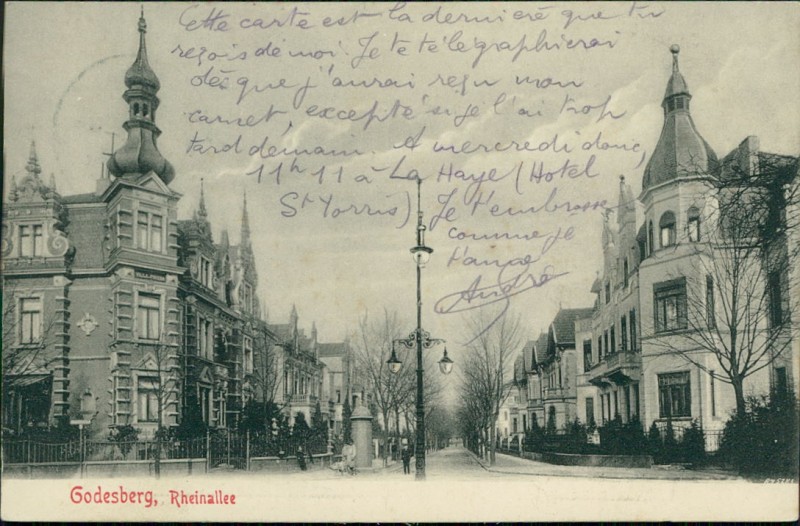 Cette carte est la dernière que tu
reçois de moi. Je te télégraphierai
dès que j'aurai reçu mon
carnet, excepté si je l'ai trop
tard demain. A mercredi donc,
11h 11 à La Haye (Hotel
St Yorris) Je t'embrasse
comme je
t'aime
André
Godesberg, Rheinallee